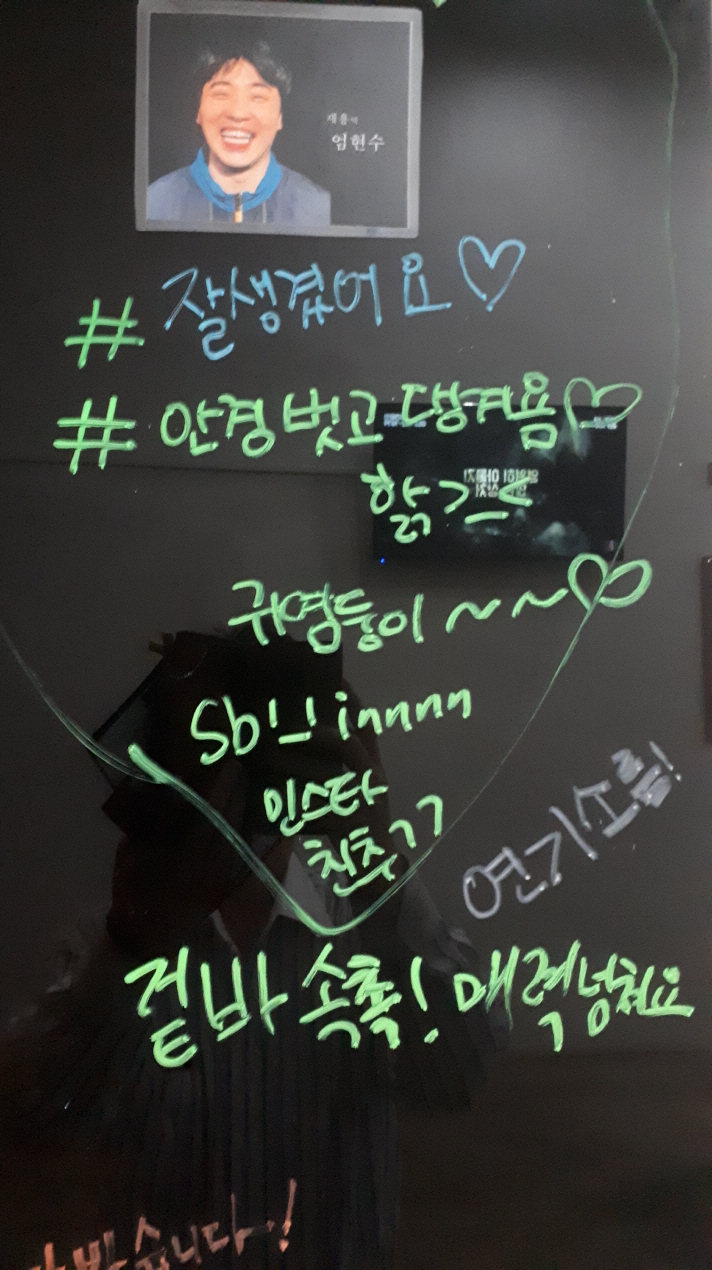 재흥 역
엄현수
# 잘생겼어요♡
# 안경벗고 댕겨욤♡
핡>_<
귀염둥이~~♡
Sb!_!innnn
인스타
친추ㄱㄱ
연기소름!
겉바속촉! 매력넘쳐요
습니다~!